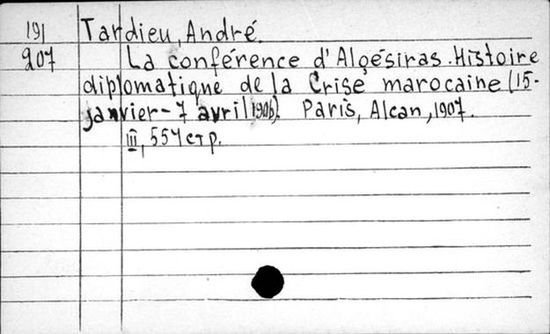 191 Tardieu, André.
207 La conférence d'Algésiras. Histoire
diplomatique de la Crise marocaine (15-
janvier - 7 avril 1906). Paris, Alcan, 1907.
III, 554 стр.